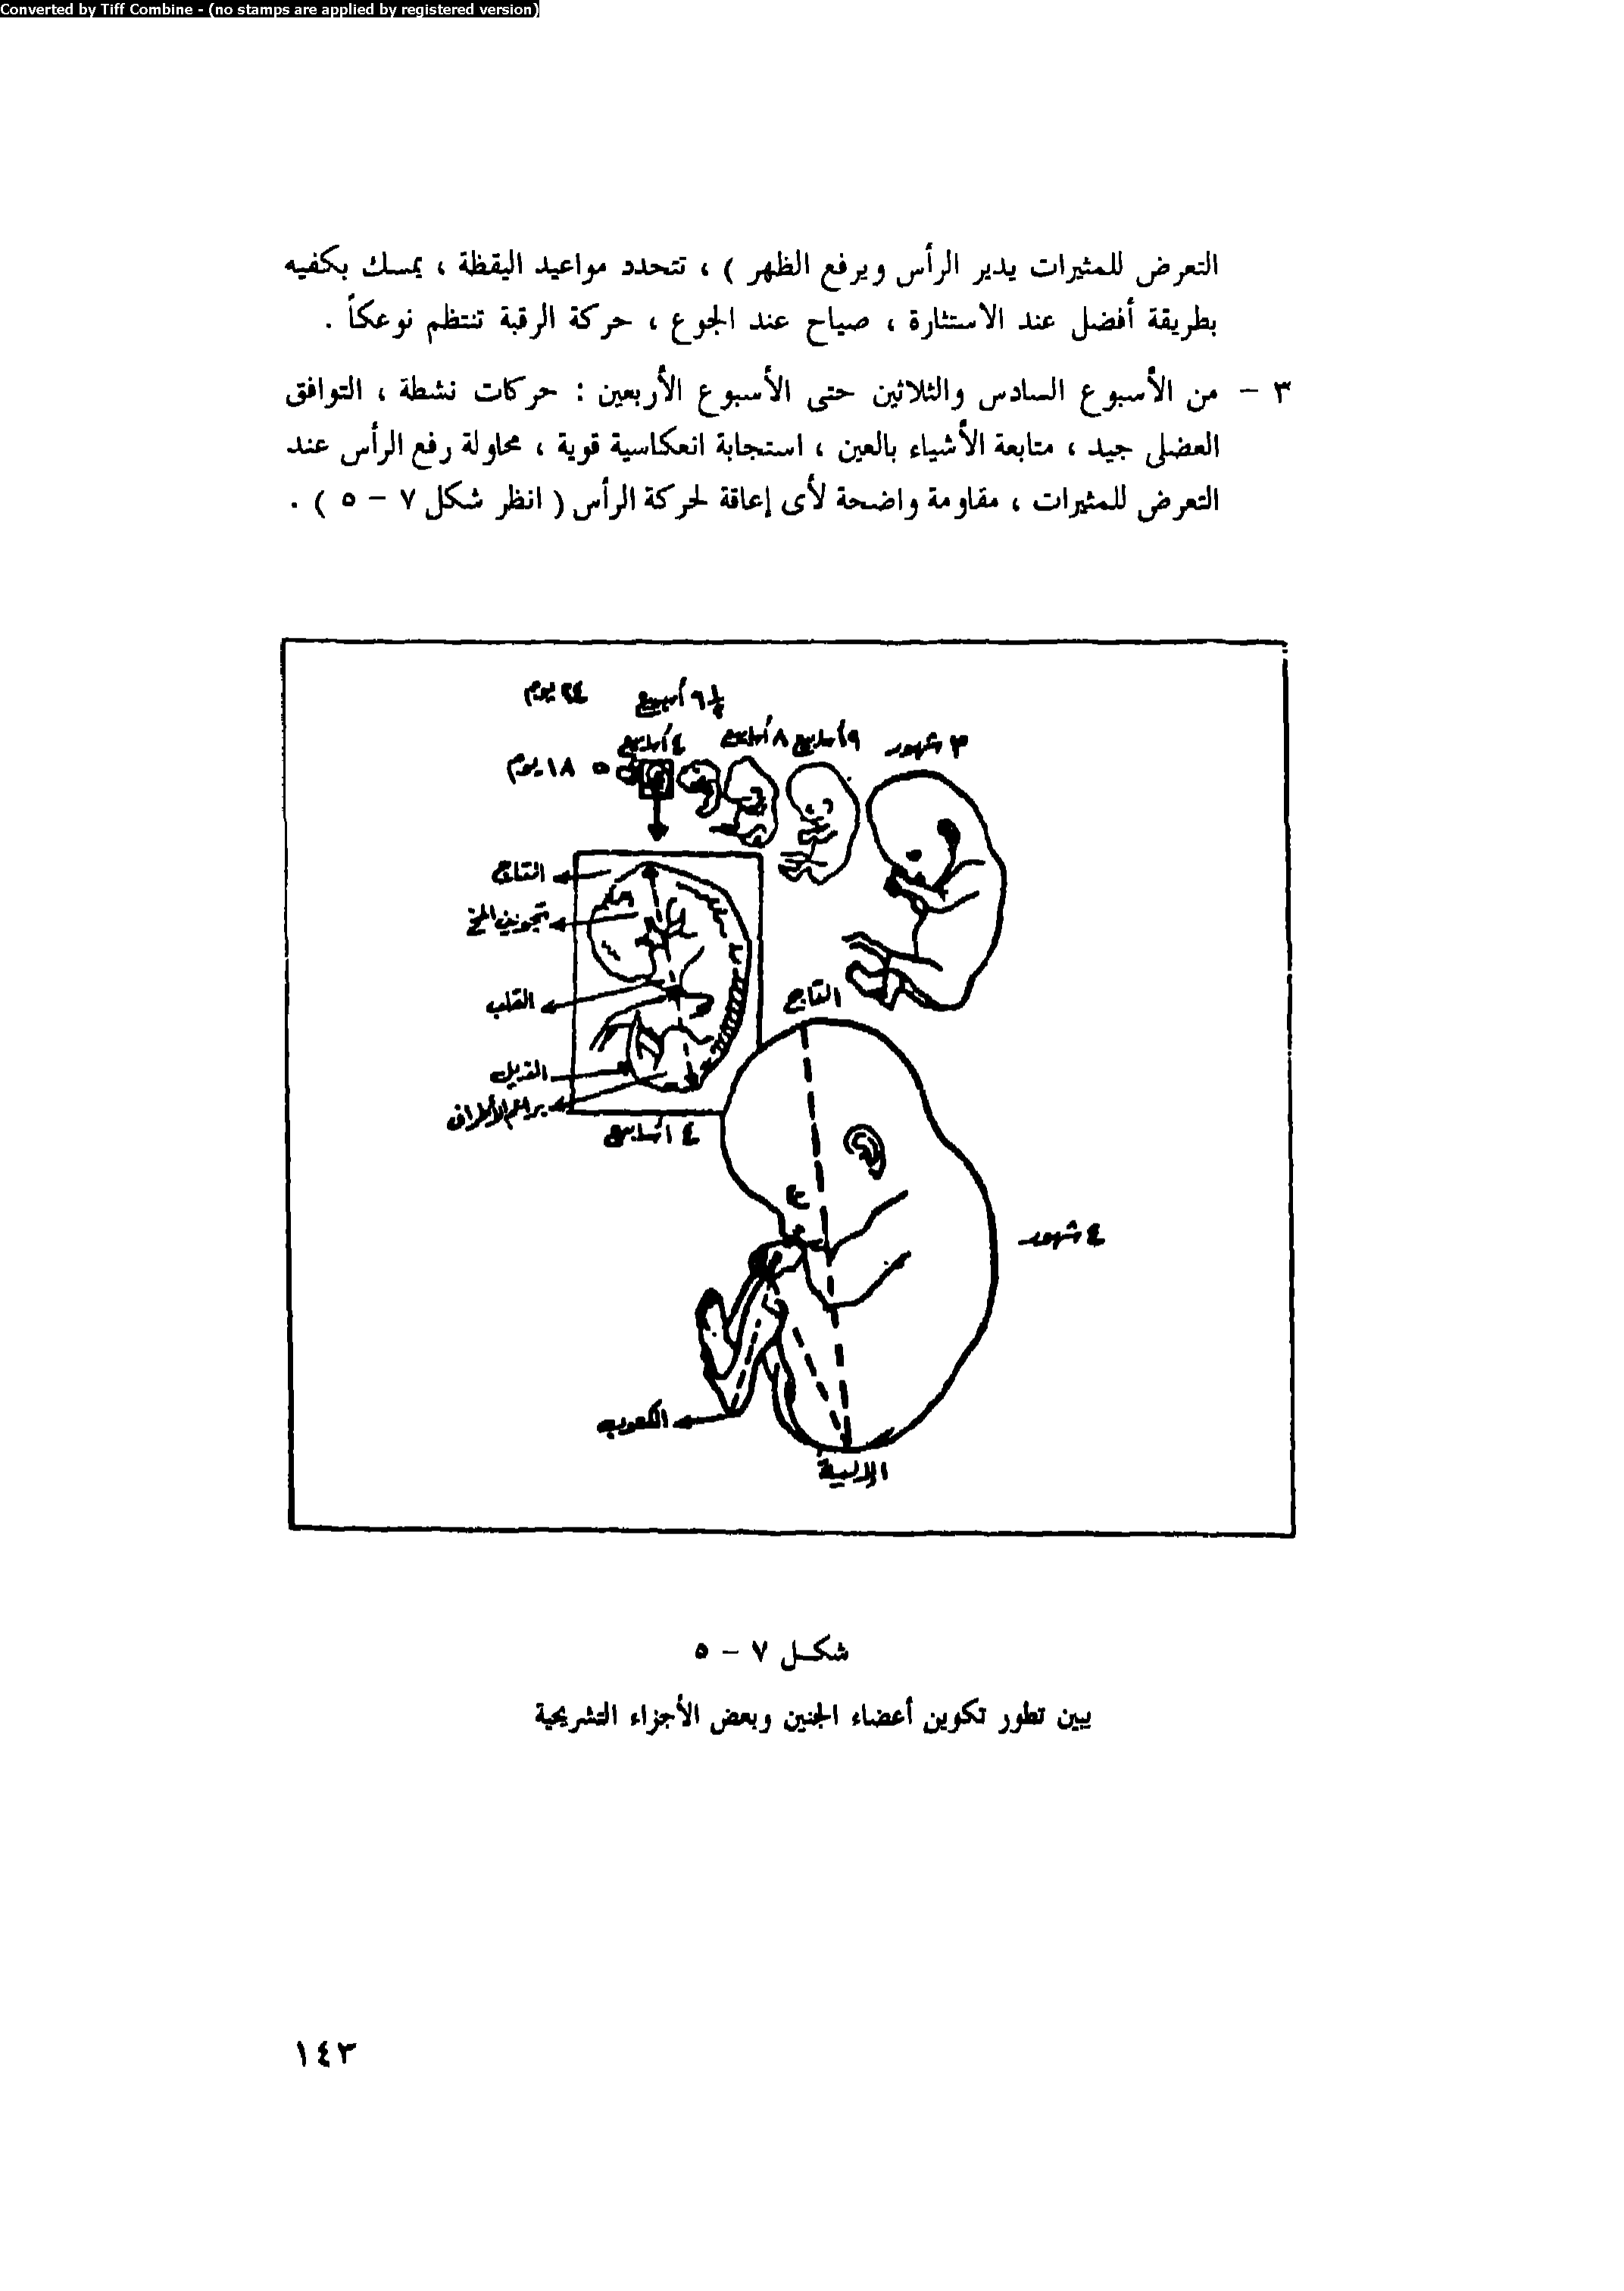 Converted by Tiff Combine - (no stamps are applied by registered version)
التعرض للمثيرات يدير الرأس ويرفع الظهر ) ، تتحدد مواعيد اليقظة ، يمسك بكفيه
بطريقة أفضل عند الاستثارة ، صياح عند الجوع ، حركة الرقبة تنتظم نوعكاً .
٣ – من الأسبوع السادس والثلاثين حتى الأسبوع الأربعين : حركات نشطة ، التوافق
العضلى جيد ، متابعة الأشياء بالعين ، استجابة انعكاسية قوية ، محاولة رفع الرأس عند
التعرض للمثيرات ، مقاومة واضحة لأى إعاقة لحركة الرأس ( انظر شكل ٧ – ٥ ) .
٢٤ يوم
٤ أسابيع
٨ أسابيع
٩ أسابيع
٣ شهور
١٨ يوم
التاج
تجويف المخ
القلب
الذيل
براعم الأطراف
٤ أسابيع
التاج
٤ شهور
الكعوب
الإلية
شكل ٧ – ٥
يبين تطور تكوين أعضاء الجنين وبعض الأجزاء التشريحية
١٤٣